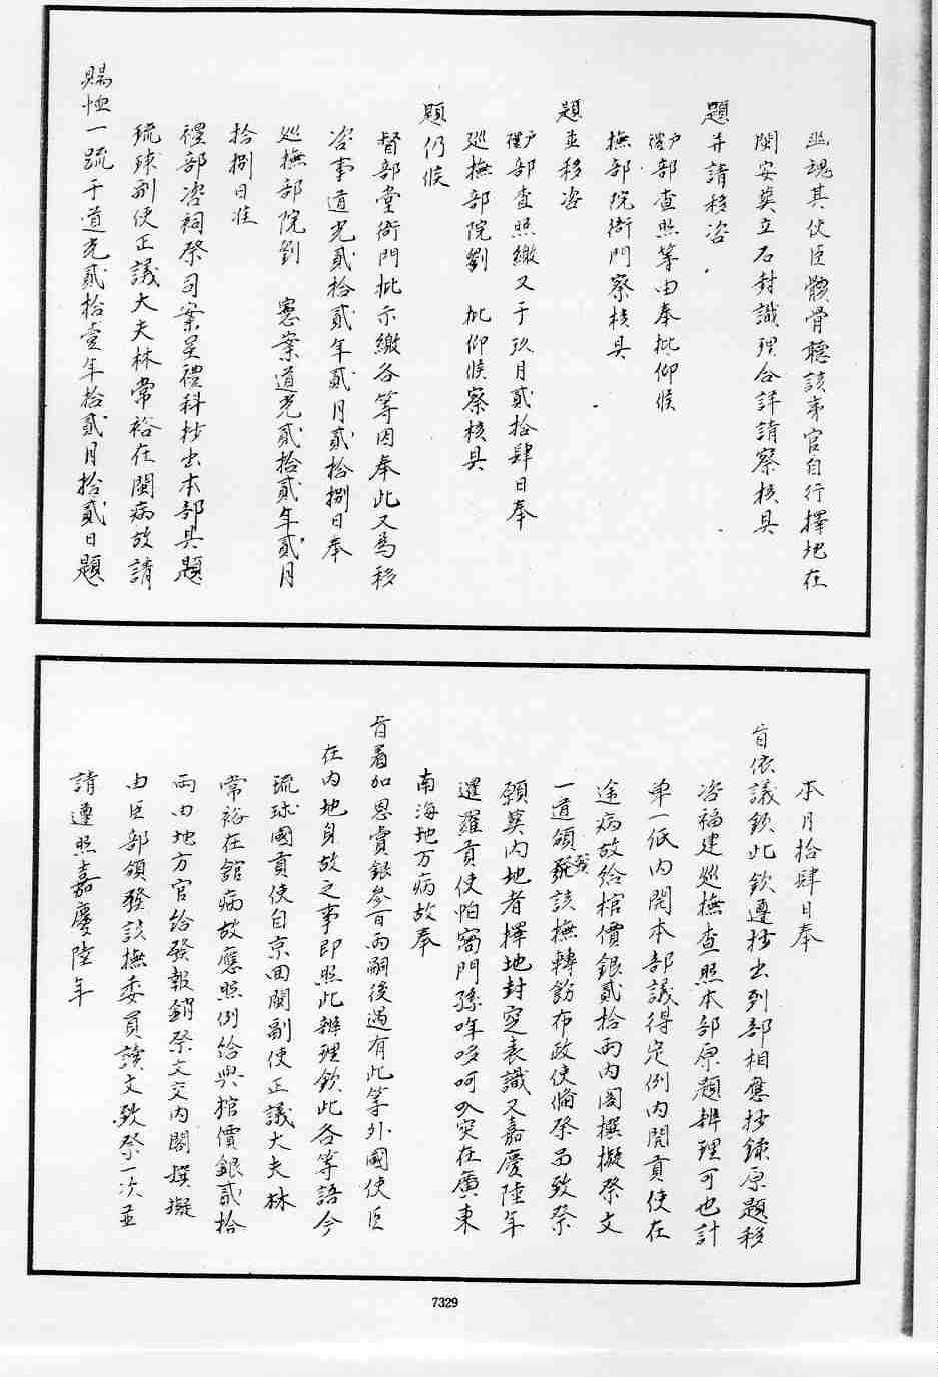 幽魂其使臣骸骨聽該弟官自行擇地在
閩安葬立石封識理合詳請察核具
題并請移咨
禮戶部查照等由奉批仰候
撫部院衙門察核具
題並移咨
禮戶部查照繳又于玖月貳拾肆日奉
巡撫部院劉　批仰候察核具
題仍候
督部堂衙門批示繳各等因奉此又為移
咨事道光貳拾貳年貳月貳拾捌日奉
巡撫部院劉　憲案道光貳拾貳年貳月
拾捌日准
禮部咨祠祭司案呈禮科抄出本部具題
琉球副使正議大夫林常裕在閩病故請
賜恤一疏于道光貳拾壹年拾貳月拾貳日題
本月拾肆日奉
旨依議欽此欽遵抄出到部相應抄錄原題移
咨福建巡撫查照本部原題辦理可也計
單一紙内開本部議得定例内開貢使在
途病故給棺價銀貳拾兩内閣撰擬祭文
一道頒發該撫轉飭布政使備祭品致祭
願葬内地者擇地封窆表識又嘉慶陸年
暹羅貢使怕窩門孫哖哆呵叭突在廣東
南海地方病故奉
旨着加恩賞銀參百兩嗣後遇有此等外國使臣
在内地身故之事即照此辦理欽此各等語今
琉球國貢使自京回閩副使正議大夫林
常裕在館病故應照例給與棺價銀貳拾
兩由地方官給發報銷祭文交内閣撰擬
由臣部頒發該撫委員讀文致祭一次並
請遵照嘉慶陸年
7329